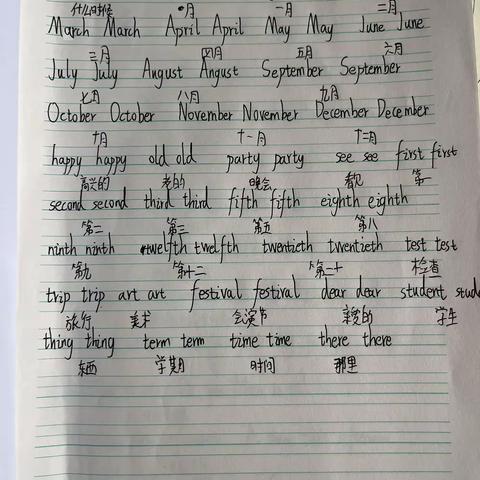 什么时候 一月 二月
March March April April May May June June
三月 四月 五月 六月
July July August August September September
七月 八月 九月
October October November November December December
十月 十一月 十二月
happy happy old old party party see see first first
高兴的 老的 晚会 看见 第一
second second third third fifth fifth eighth eighth
第二 第三 第五 第八
ninth ninth twelfth twelfth twentieth twentieth test test
第九 第十二 第二十 检查
trip trip art art festival festival dear dear student stud
旅行 美术 会演节 亲爱的 学生
thing thing term term time time there there
东西 学期 时间 那里